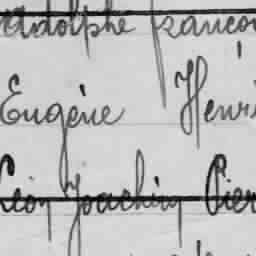 Adolphe Françoi
Eugène Henri
Léon Joachim Pier